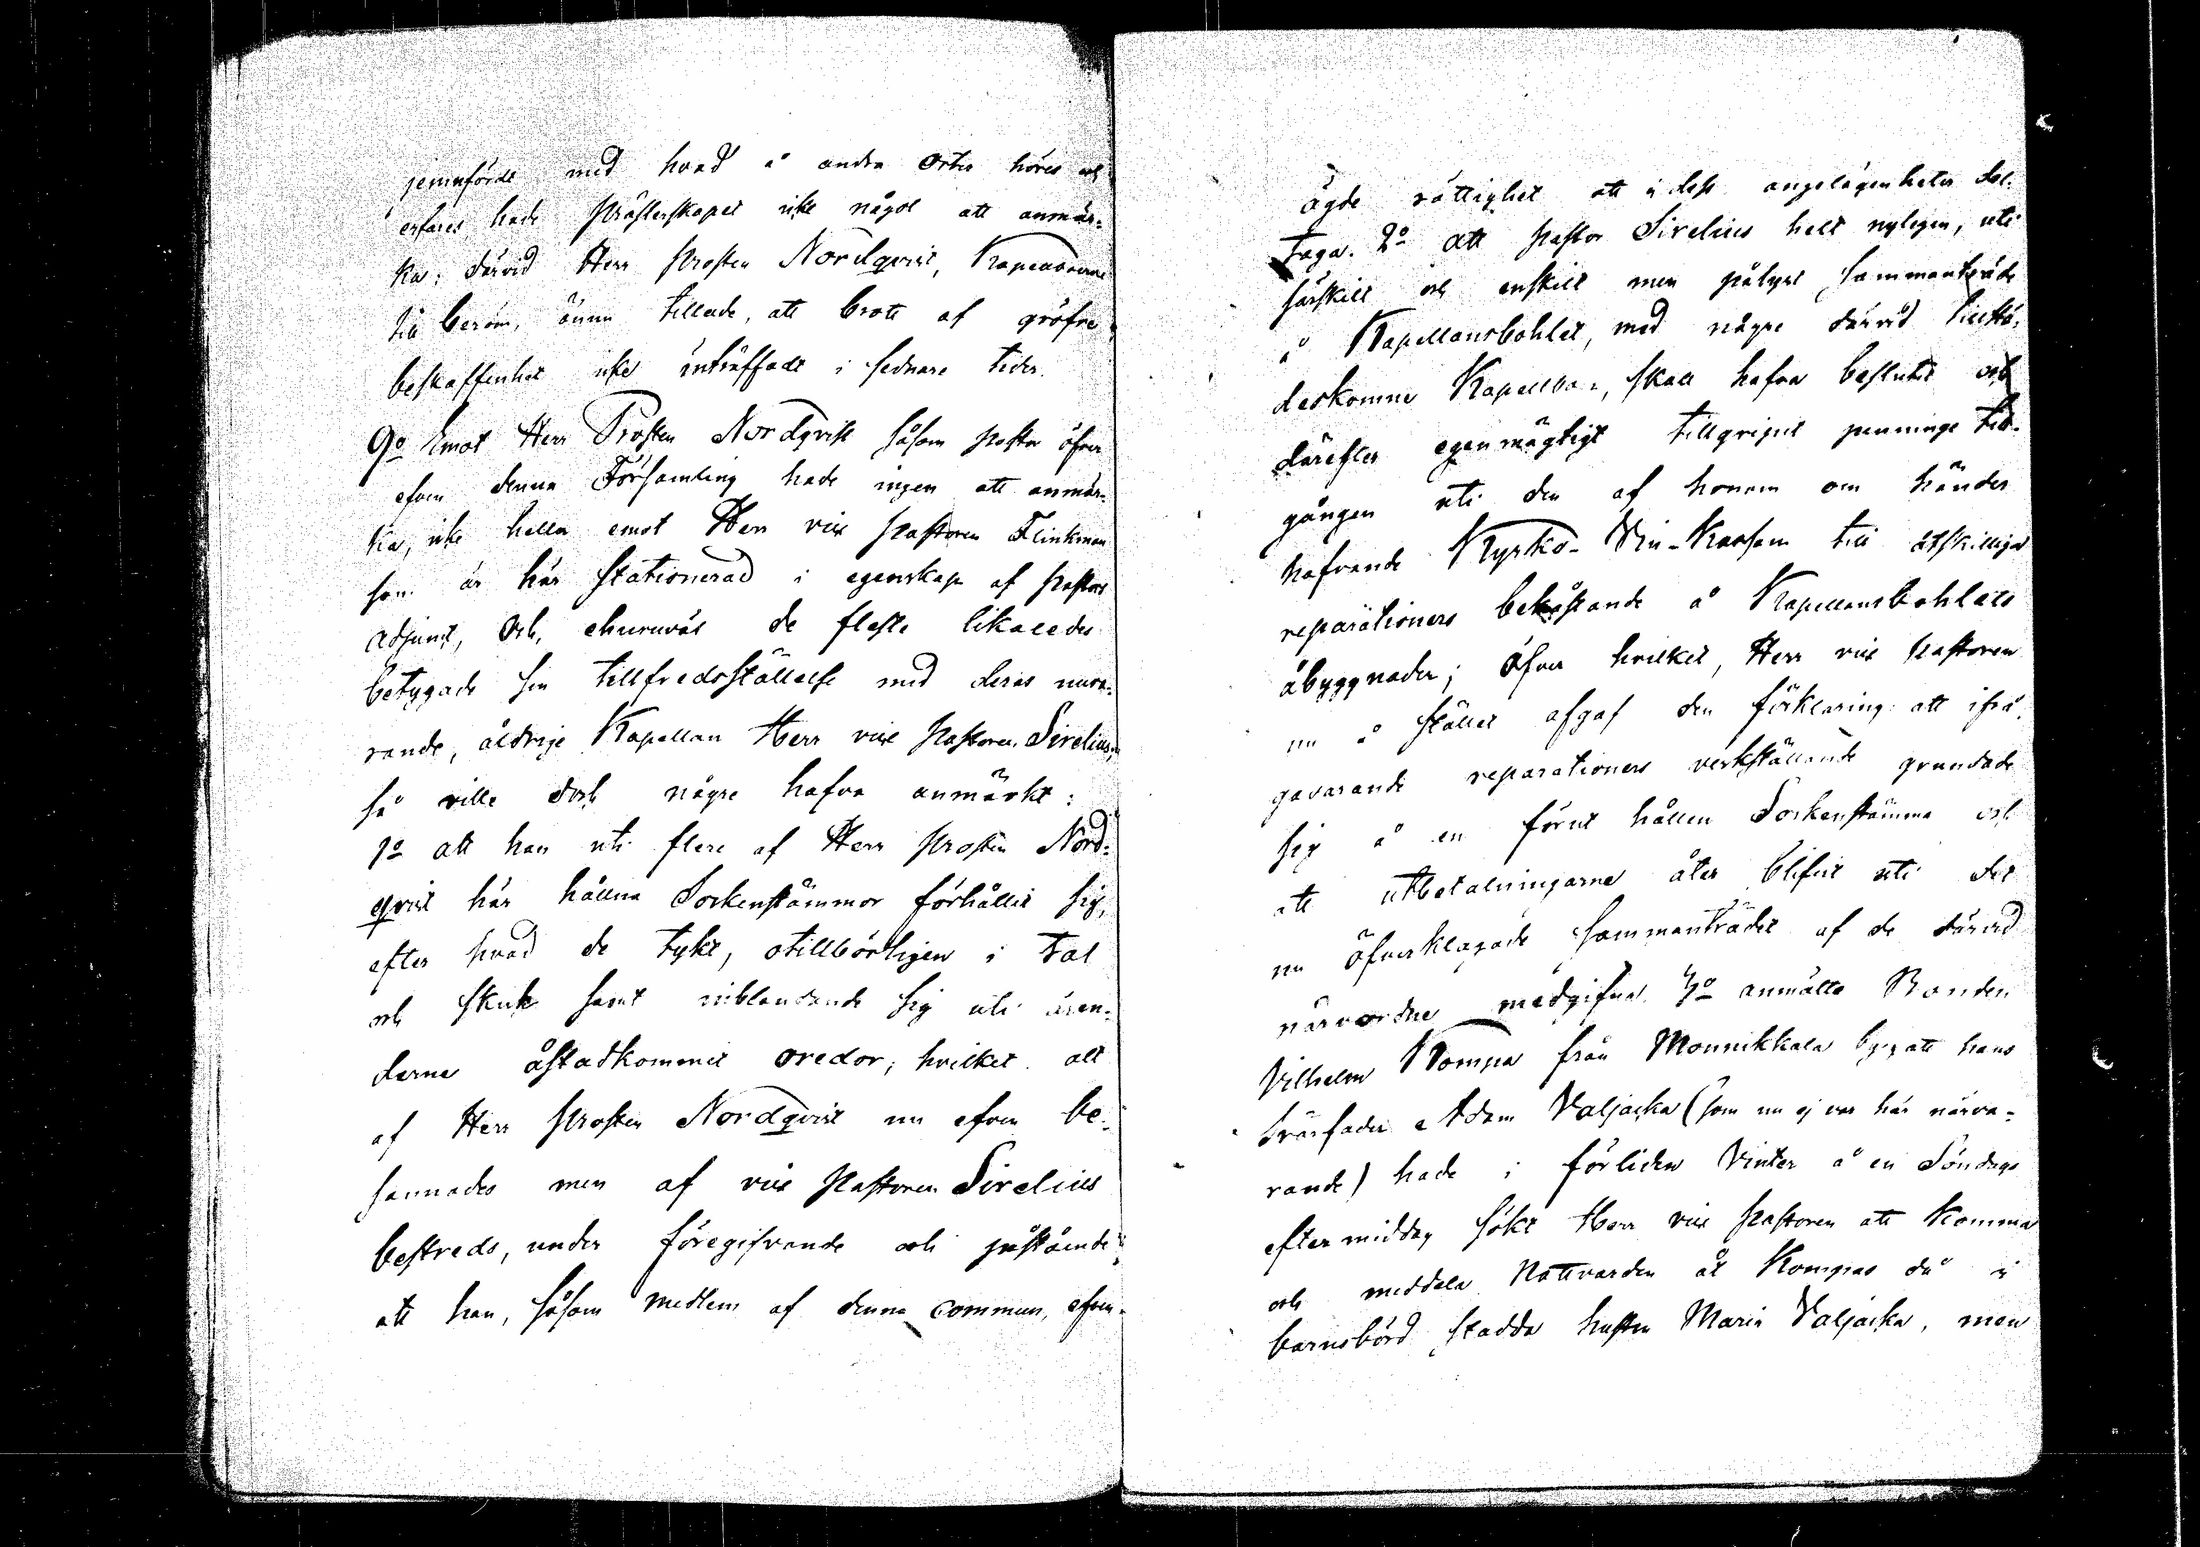 jemnförde med hvad å andra Orter höres och
erfares hade Prästerskapet icke något att anmär-
ka; därvid Herr Prosten Nordqvist, Kapellboerne
till beröm, ännu tillade, att brott af gröfre
beskaffenhet icke inträffadt i sednare tider.
9o Emot Herr Prosten Nordqvist såsom Pastor öfver
efven denna Församling hade ingen att anmär-
ka, icke heller emot Herr vice Pastoren Flinkman
som är här stationerad i egenskap af Pastors
Adjunct, Och, ehuruväl de fleste likaledes
betygade sin tillfredsställelse med deras nuva-
rande, åldrige Kapellan Herr vice Pastoren Sirelius,
så ville dock någre hafva anmärkt:
1o att han uti flere af Herr Prosten Nord-
qvist här hållna Sockenstämmor förhållit sig,
efter hvad de tykt, otillbörligen i tal
och skick samt inblandande sig uti ären-
derne åstadkommit oredor; hvilket allt
af Herr Prosten Nordqvist nu efven be-
sannades men af vice Pastoren Sirelius
bestreds, under föregifvande och påstående
att han, såsom medlem af denna commun, efven
ägde rättighet att i dess angelägenheter del-
taga. 2o att Pastor Sirelius helt nyligen, uti
särskilt och enskilt men pålyst sammanträde
å Kapellansbohlet, med någre därvid tillstä-
deskomne Kapellboer, skall hafva beslutit och
därefter egenmägtigt tillgripit penninge till-
gången uti den af honom om händer
hafvande Kyrko-Vin-Kassan till åtskilliga
reparationers bekåstande å Kapellansbohlets
åbyggnader; Öfver hvilket, Herr vice Pastoren
nu å stället afgaf den förklaring att ifrå-
gavarande reparationers verkställande grundade
sig å en förut hållen Sockenstämma och
att utbetalningarne åter blifvit uti det
nu öfverklagade sammanträdet af de därvid
närvordne medgifna. 3o anmälte Bonden
Vilhelm Kompa från Monnikkala by att hans
Svärfader Adam Valjacka (som nu ej var här närva-
rande) hade i förliden Vinter å en Söndags
eftermiddag sökt Herr vice Pastoren att komma
och meddela Nattvarden åt Kompas då i
barnsbörd stadda hustru Maria Valjacka, men